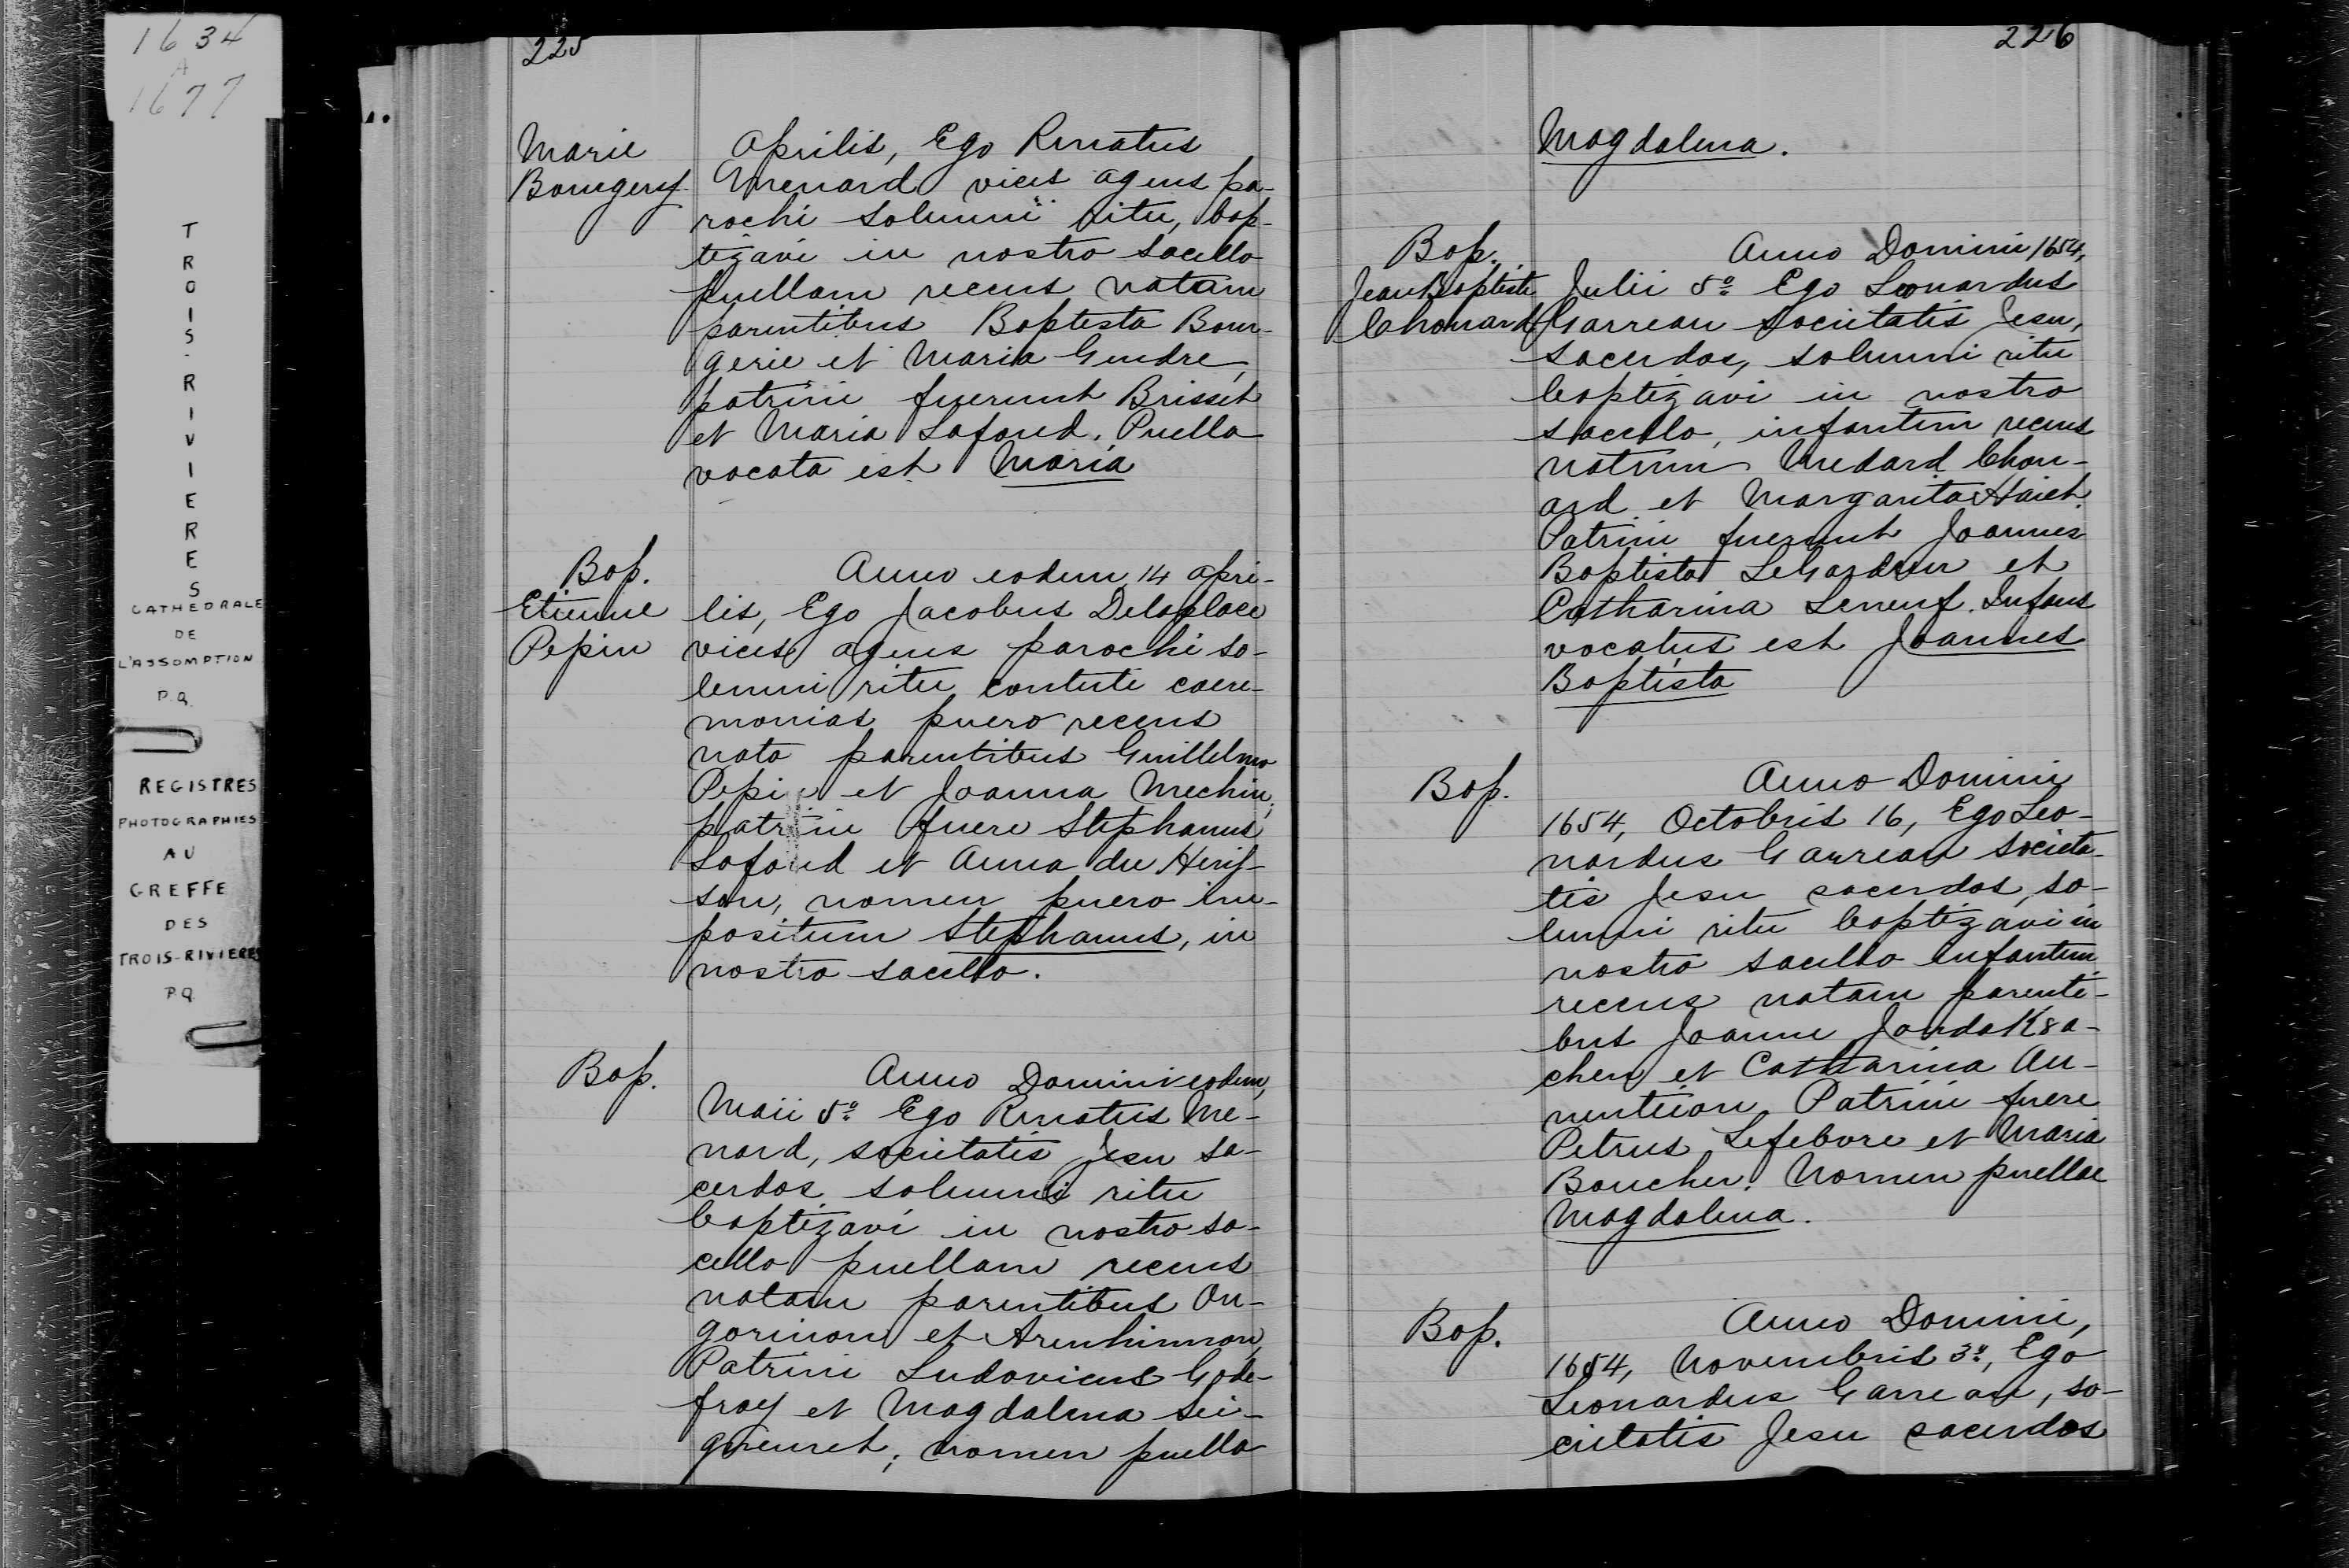 1634
A
1677
TROIS-RIVIERES
CATHEDRALE
DE
L'ASSOMPTION
P.Q.
REGISTRES
PHOTOGRAPHIES
AU
GREFFE
DES
TROIS-RIVIERES
P.Q.
225
Marie
Bourgery
Aprilis, Ego Renatus
Menard vices agens pa-
rochi solemni ritu, bap-
tizavi in nostro sacello
puellam recens natam
parentibus Baptista Bour-
gerie et Maria Gendre,
patrini fuerunt Brisset
et Maria Lafond. Puella
vocata est Maria
Bap.
Etienne
Pepin
Anno eodem 14 apri-
lis, Ego Jacobus Delaplace
vices agens parochi so-
lemni ritu, contuti caere-
monias puero recens
nato parentibus Guillelmo
Pepin et Joanna Mechin,
patrini fuere Stephanus
Lafond et Anna du Heris-
son, nomen puero im-
positum Stephanus, in
nostro sacello.
Bap.
Anno Domini eodem,
Maii 5º Ego Renatus Me-
nard, societatis Jesu sa-
cerdos solemni ritu
baptizavi in nostro sa-
cello puellam recens
natam parentibus On-
gorinon et Arenhinnon,
Patrini Ludovicus Gode-
froy et Magdalena Sei-
gneuret; nomen puella
226
Magdalena.
Bap.
Jean Baptiste
Chouard
Anno Domini 1654,
Julii 5º Ego Leonardus
Garreau societatis Jesu,
sacerdos, solemni ritu
baptizavi in nostro
sacello, infantem recens
natum Medard Chou-
ard et Margarita Haiet.
Patrini fuerunt Joannes
Baptista LeGardeur et
Catharina Leneuf. Infans
vocatus est Joannes
Baptista
Bap.
Anno Domini
1654, Octobris 16, Ego Leo-
nardus Garreau societa-
tis Jesu sacerdos, so-
lemni ritu baptizavi in
nostro sacello infantem
recens natam parenti-
bus Joanne JondaK8a-
chen et Catharina An-
nenteion. Patrini fuere
Petrus Lefebvre et Maria
Boucher. Nomen puellae
Magdalena.
Bap.
Anno Domini,
1654, Novembris 3º, Ego
Leonardus Garreau, so-
cietatis Jesu sacerdos